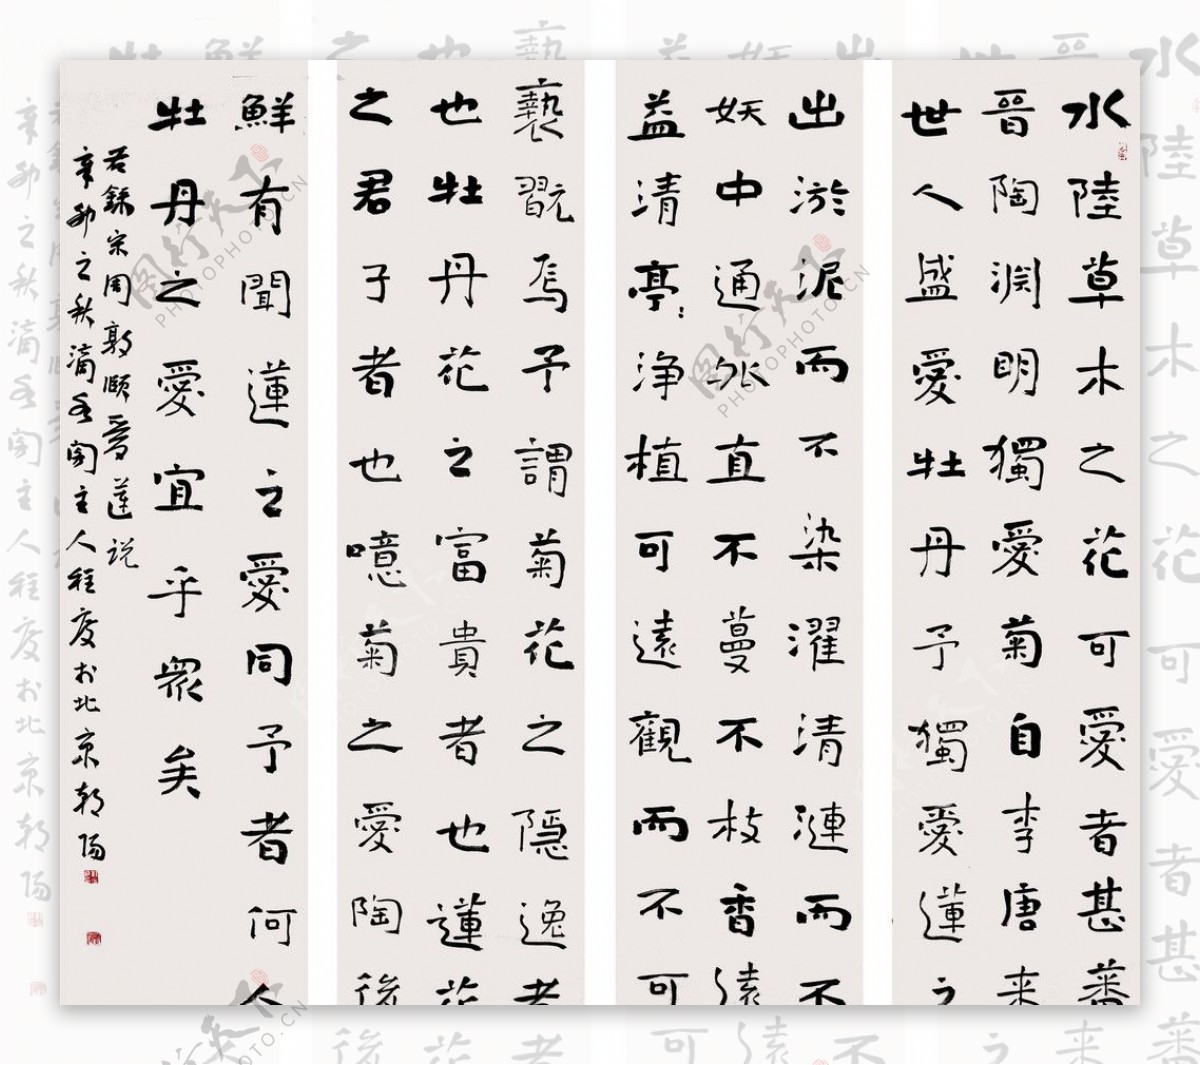 水陸草木之花可愛者甚蕃
晉陶淵明獨愛菊自李唐来
世人盛愛牡丹予獨愛蓮之
出淤泥而不染濯清漣而不
妖中通外直不蔓不枝香遠
益清亭〻浄植可遠觀而不可
褻翫焉予謂菊花之隱逸者
也牡丹花之富貴者也蓮花
之君子者也噫菊之愛陶後
鮮有聞蓮之愛同予者何人
牡丹之愛宜乎衆矣
右録宋周敦頤愛蓮説
辛卯之秋滴水閣主人程度於北京朝陽
图行天下
PHOTOPHOTO.CN